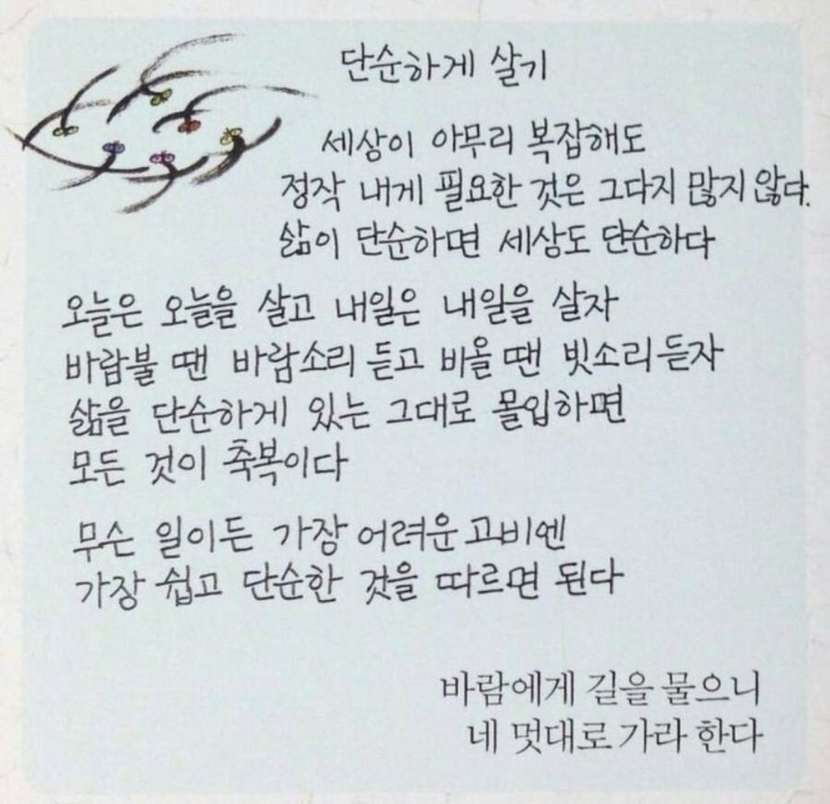 단순하게 살기
세상이 아무리 복잡해도
정작 내게 필요한 것은 그다지 많지 않다.
삶이 단순하면 세상도 단순하다
오늘은 오늘을 살고 내일은 내일을 살자
바람불 땐 바람소리 듣고 비올 땐 빗소리 듣자
삶을 단순하게 있는 그대로 몰입하면
모든 것이 축복이다
무슨 일이든 가장 어려운 고비엔
가장 쉽고 단순한 것을 따르면 된다
바람에게 길을 물으니
네 멋대로 가라 한다